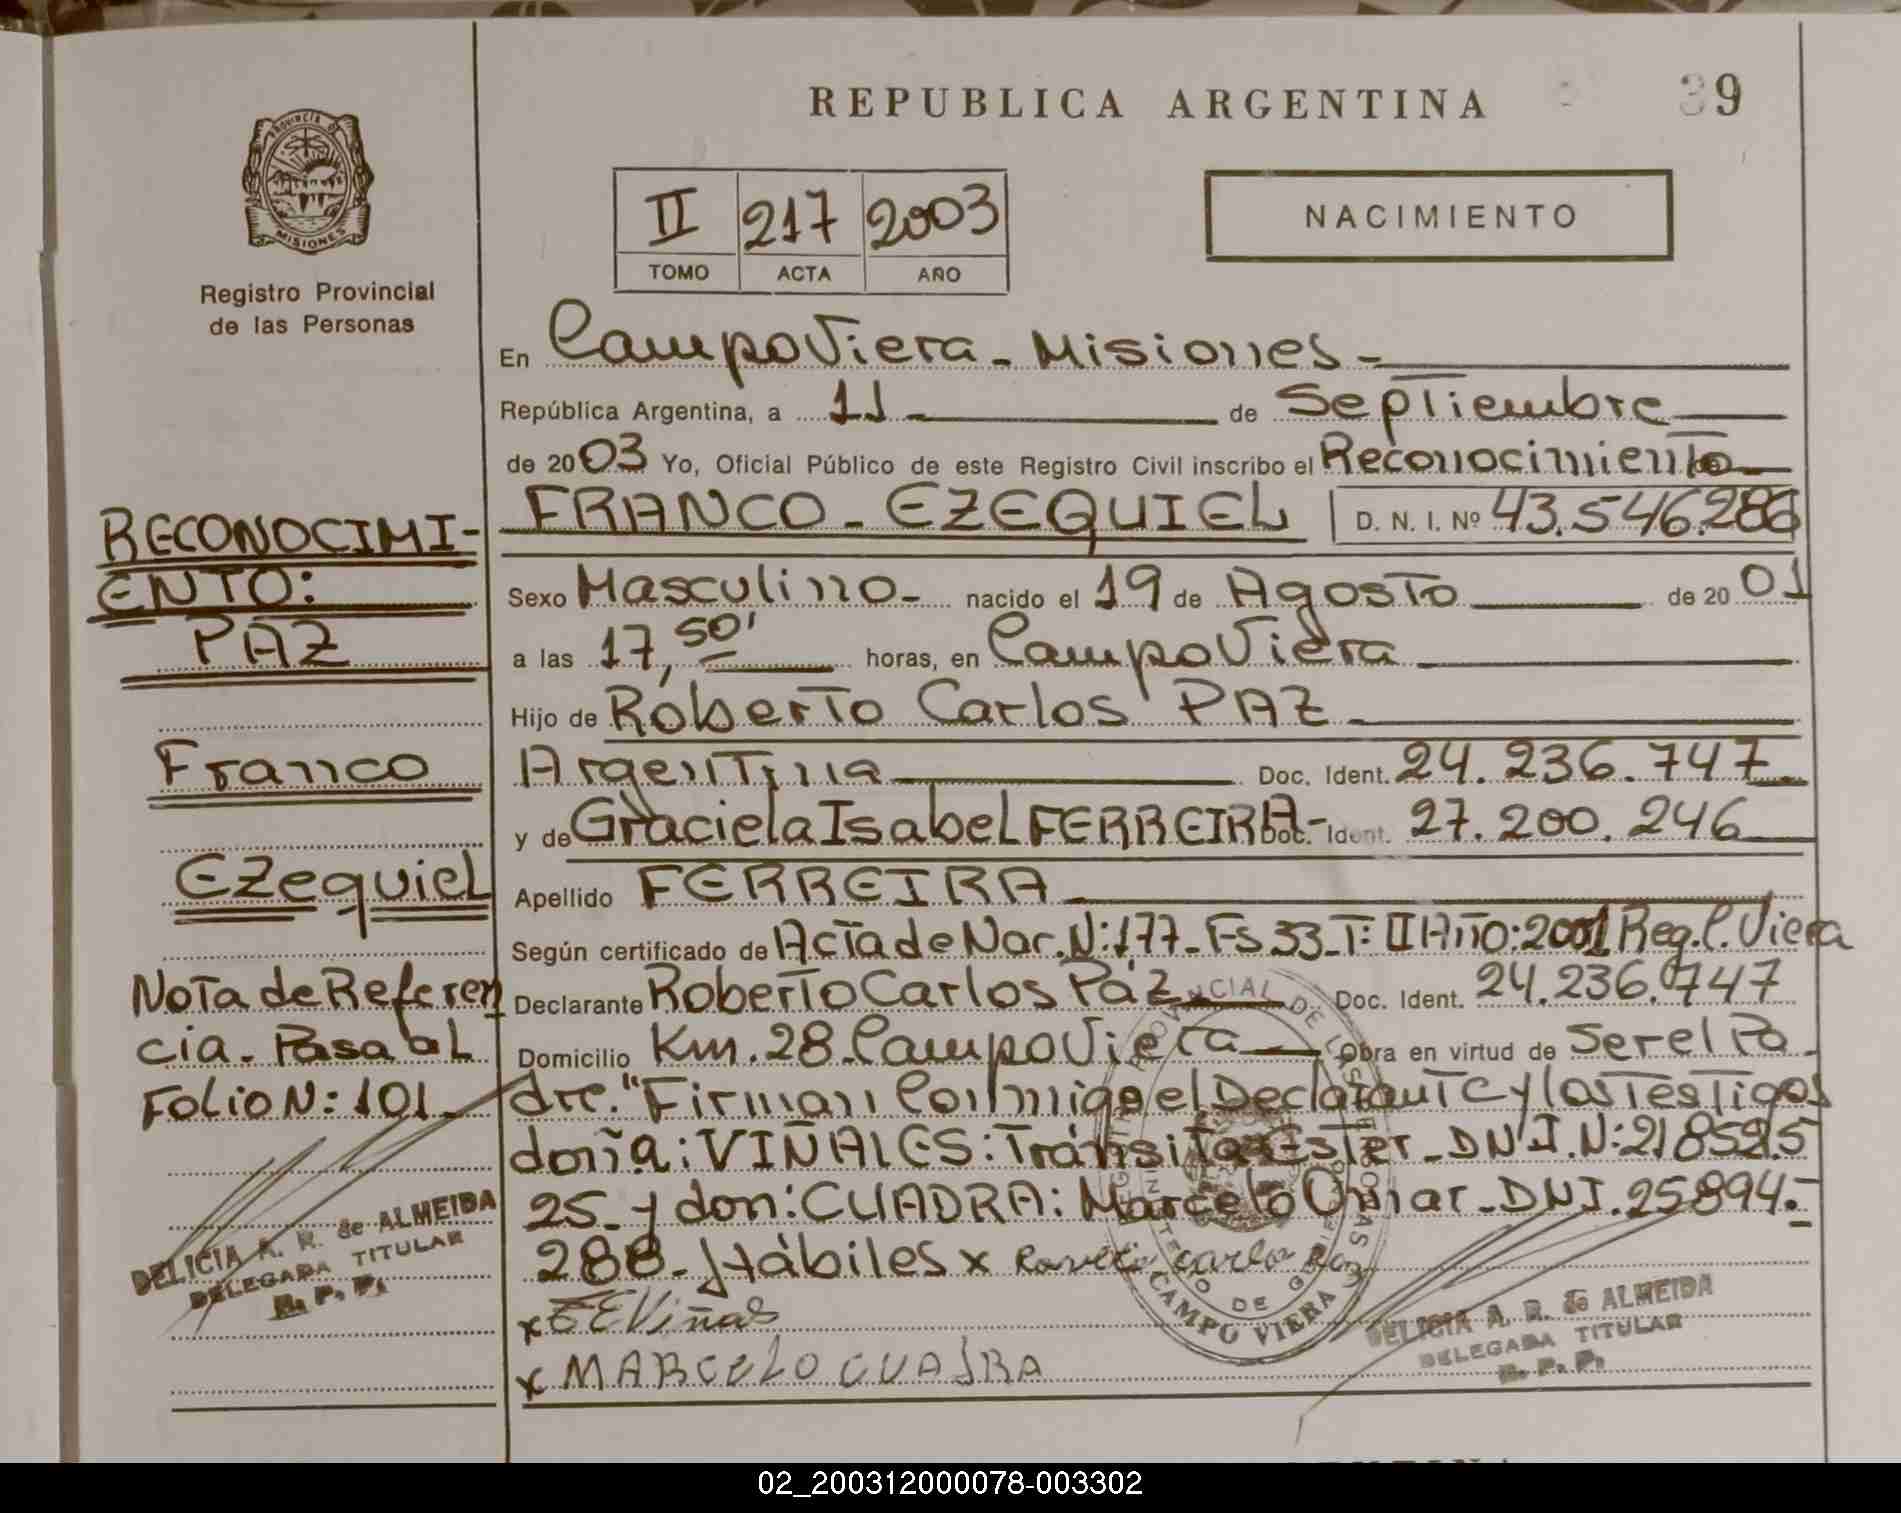 REPUBLICA ARGENTINA
39
PROVINCIA DE
MISIONES
Registro Provincial
de las Personas
II 217 2003
TOMO ACTA AÑO
NACIMIENTO
En Campo Viera - Misiones -
República Argentina, a 11 - de Septiembre
de 2003 Yo, Oficial Público de este Registro Civil inscribo el Reconocimiento
FRANCO - EZEQUIEL D. N. I. Nº 43.546.286
Sexo Masculino - nacido el 19 de Agosto de 2001
a las 17,50' horas, en Campo Viera
Hijo de Roberto Carlos PAZ
Argentina Doc. Ident. 24.236.747
y de Graciela Isabel FERREIRA - Doc. Ident. 27.200.246
Apellido FERREIRA
Según certificado de Acta de Nac. N: 177 - Fs 33 - T: II Año: 2001 Reg. C. Viera
Declarante Roberto Carlos Paz Doc. Ident. 24.236.747
Domicilio Km. 28 - Campo Viera Obra en virtud de Ser el Pa
dre." Firman Conmigo el Declarante y los Testigos
doña: VIÑALES: Tránsita Ester - DNI. N: 21.852.5
25 - y don: CUADRA: Marcelo Omar - DNI. 25.894.-
288 - Hábiles x Carlo Paz
x T E Viñas
x MARCELO CUADRA
RECONOCIMI-
ENTO:
PAZ
Franco
Ezequiel
Nota de Referen
cia - Pasa al
Folio N: 101 -
DELICIA A. R. de ALMEIDA
DELEGADA TITULAR
R. P. P.
CAMPO VIERA
DELICIA A. R. de ALMEIDA
DELEGADA TITULAR
R. P. P.
02_200312000078-003302